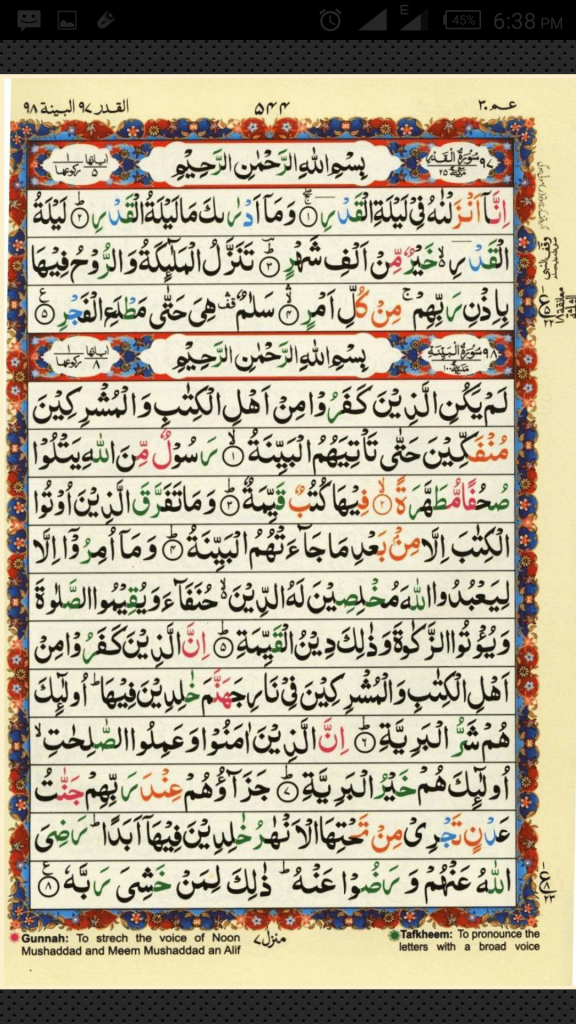 E 45% 6:38 PM
القدر ٩٧ البينة ٩٨ ۵۴۴ عـم ٣٠
اٰیاتها ۵ رکوعها ١ بِسْمِ اللهِ الرَّحْمٰنِ الرَّحِيْمِ ٩٧ سُوْرَةُ الْقَدْرِ مَكِّيَّةٌ ٢۵
اِنَّاۤ اَنْزَلْنٰهُ فِيْ لَيْلَةِ الْقَدْرِ ۚۖ ١ وَمَاۤ اَدْرٰىكَ مَا لَيْلَةُ الْقَدْرِ ؕ ٢ لَيْلَةُ
الْقَدْرِ ۙ۬ خَيْرٌ مِّنْ اَلْفِ شَهْرٍ ؕ ٣ تَنَزَّلُ الْمَلٰٓئِكَةُ وَالرُّوْحُ فِيْهَا
بِاِذْنِ رَبِّهِمْ ۚ مِنْ كُلِّ اَمْرٍ ۙ ۴ سَلٰمٌ ۛ هِيَ حَتّٰى مَطْلَعِ الْفَجْرِ ۵ ع
اٰیاتها ٨ رکوعها ١ بِسْمِ اللهِ الرَّحْمٰنِ الرَّحِيْمِ ٩٨ سُوْرَةُ الْبَيِّنَةِ ١٠٠
لَمْ يَكُنِ الَّذِيْنَ كَفَرُوْا مِنْ اَهْلِ الْكِتٰبِ وَالْمُشْرِكِيْنَ
مُنْفَكِّيْنَ حَتّٰى تَاْتِيَهُمُ الْبَيِّنَةُ ۙ ١ رَسُوْلٌ مِّنَ اللهِ يَتْلُوْا
صُحُفًا مُّطَهَّرَةً ۙ ٢ فِيْهَا كُتُبٌ قَيِّمَةٌ ؕ ٣ وَمَا تَفَرَّقَ الَّذِيْنَ اُوْتُوا
الْكِتٰبَ اِلَّا مِنْۢ بَعْدِ مَا جَآءَتْهُمُ الْبَيِّنَةُ ؕ ۴ وَمَاۤ اُمِرُوْۤا اِلَّا
لِيَعْبُدُوا اللهَ مُخْلِصِيْنَ لَهُ الدِّيْنَ ۙ۬ حُنَفَآءَ وَيُقِيْمُوا الصَّلٰوةَ
وَيُؤْتُوا الزَّكٰوةَ وَذٰلِكَ دِيْنُ الْقَيِّمَةِ ؕ ۵ اِنَّ الَّذِيْنَ كَفَرُوْا مِنْ
اَهْلِ الْكِتٰبِ وَالْمُشْرِكِيْنَ فِيْ نَارِ جَهَنَّمَ خٰلِدِيْنَ فِيْهَا ؕ اُولٰٓئِكَ
هُمْ شَرُّ الْبَرِيَّةِ ؕ ٦ اِنَّ الَّذِيْنَ اٰمَنُوْا وَعَمِلُوا الصّٰلِحٰتِ ۙ
اُولٰٓئِكَ هُمْ خَيْرُ الْبَرِيَّةِ ؕ ٧ جَزَآؤُهُمْ عِنْدَ رَبِّهِمْ جَنّٰتُ
عَدْنٍ تَجْرِيْ مِنْ تَحْتِهَا الْاَنْهٰرُ خٰلِدِيْنَ فِيْهَاۤ اَبَدًا ؕ رَضِيَ
اللهُ عَنْهُمْ وَرَضُوْا عَنْهُ ؕ ذٰلِكَ لِمَنْ خَشِيَ رَبَّهٗ ٨ ع
Gunnah: To strech the voice of Noon
Mushaddad and Meem Mushaddad an Alif
منزل ٧
Tafkheem: To pronounce the
letters with a broad voice